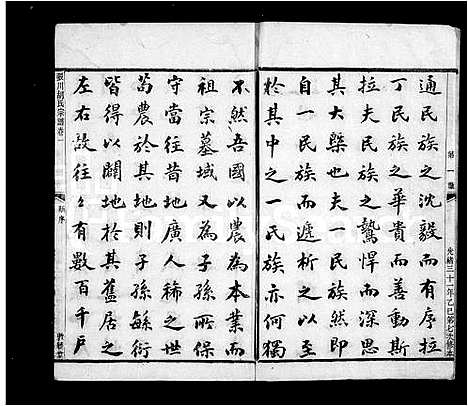 通民族之沈毅而有序拉
丁民族之華貴而善動斯
拉夫民族之鷙悍而深思
其大槩也夫一民族然即
自一民族而遞析之以至
於其中之一民族亦何獨
不然吾國以農為本業而
祖宗墓域又為子孫所保
守當往昔地廣人稀之世
苟農於其地則子孫緐衍
皆得以闢地於其舊居之
左右故往々有數百千戶
第一
光緒三十一年乙巳第七次修本
張川胡氏宗譜卷一
新序
敦睦堂